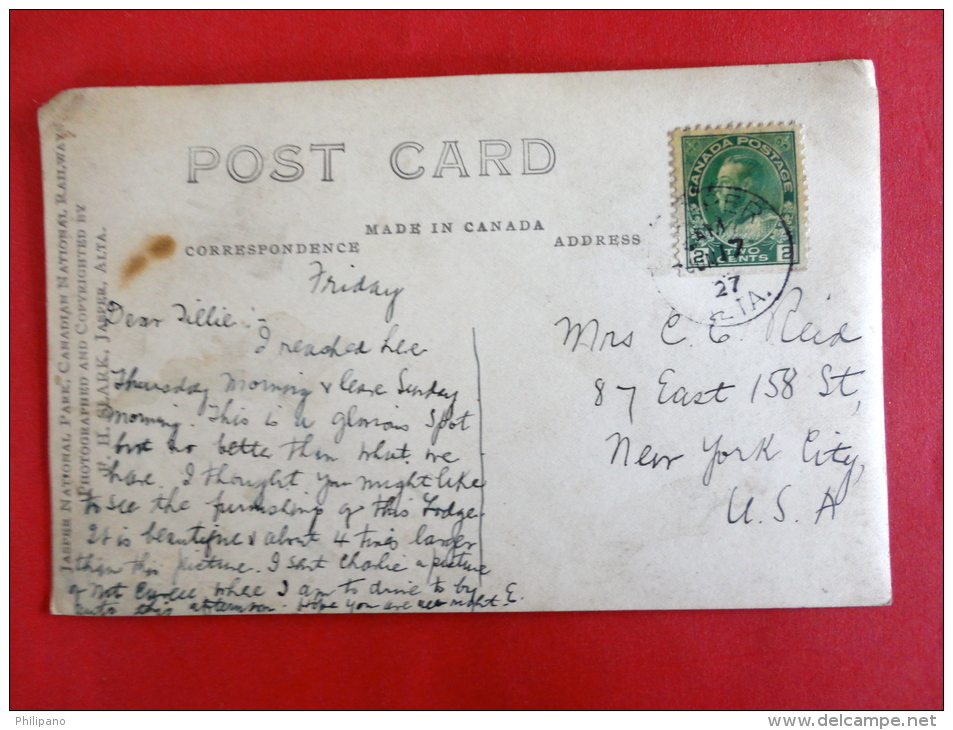 POST CARD
MADE IN CANADA
CORRESPONDENCE
ADDRESS
JASPER NATIONAL PARK, CANADIAN NATIONAL RAILWAYS
PHOTOGRAPHED AND COPYRIGHTED BY
F. H. SLARK, JASPER, ALTA.
CANADA POSTAGE
2 TWO CENTS 2
PER
AM
7
27
LTA.
Friday
Dear Tillie:-
I reached here
Thursday morning & leave Sunday
morning. This is a glorious spot
but no better than what we
have. I thought you might like
to see the furnishing of this Lodge.
It is beautiful & about 4 times larger
than this picture. I sent Charlie a picture
of Mt where I am to drive to by
auto this afternoon. Hope you are all right E.
Mrs C. E. Reid
87 East 158 St,
New York City,
U.S.A
Philipano
www.delcampe.net